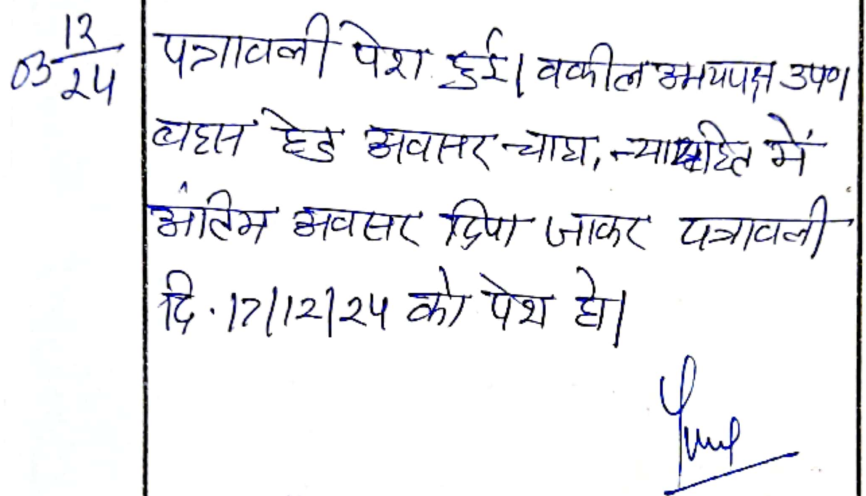 03 12/24
पत्रावली पेश हुई। वकील उभयपक्ष उप०।
बहस हेतु अवसर चाहा, न्यायहित में
अंतिम अवसर दिया जाकर पत्रावली
दि. 17/12/24 को पेश हो।